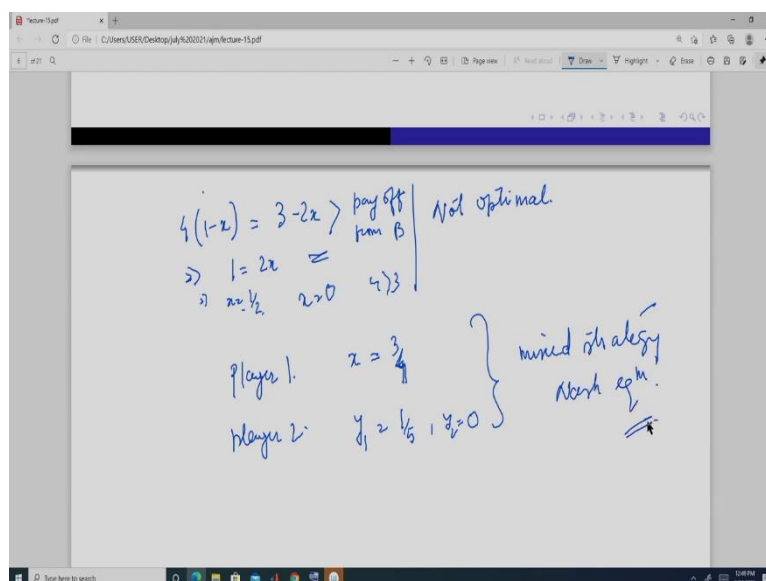 lecture-15.pdf
File | C:/Users/USER/Desktop/july%202021/ajm/lecture-15.pdf
6 of 21 Page view Read aloud Draw Highlight Erase
4(1-x) = 3-2x > pay off from B | Not optimal.
⇒ 1 = 2x
⇒ x = 1/2 x=0 4>3
Player 1. x = 3/4
player 2. y₁ = 1/5, y₂=0
mixed strategy
Nash eqᵐ.
Type here to search 12:49 PM